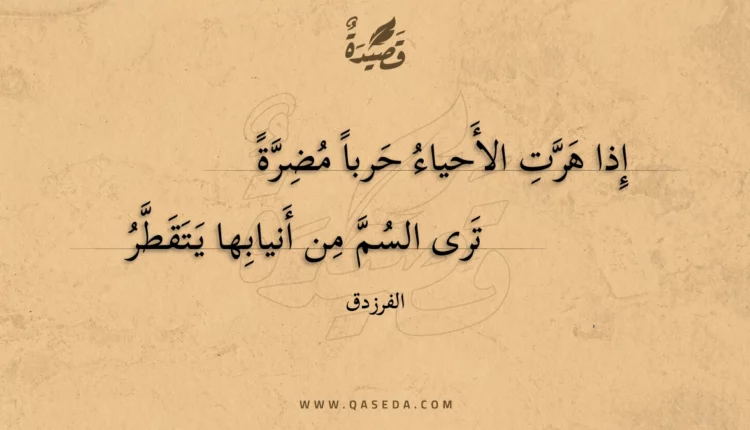 قَصِيْدَةٌ
إِذا هَرَّتِ الأَحياءُ حَرباً مُضِرَّةً
تَرى السُمَّ مِن أَنيابِها يَتَقَطَّرُ
الفرزدق
WWW.QASEDA.COM